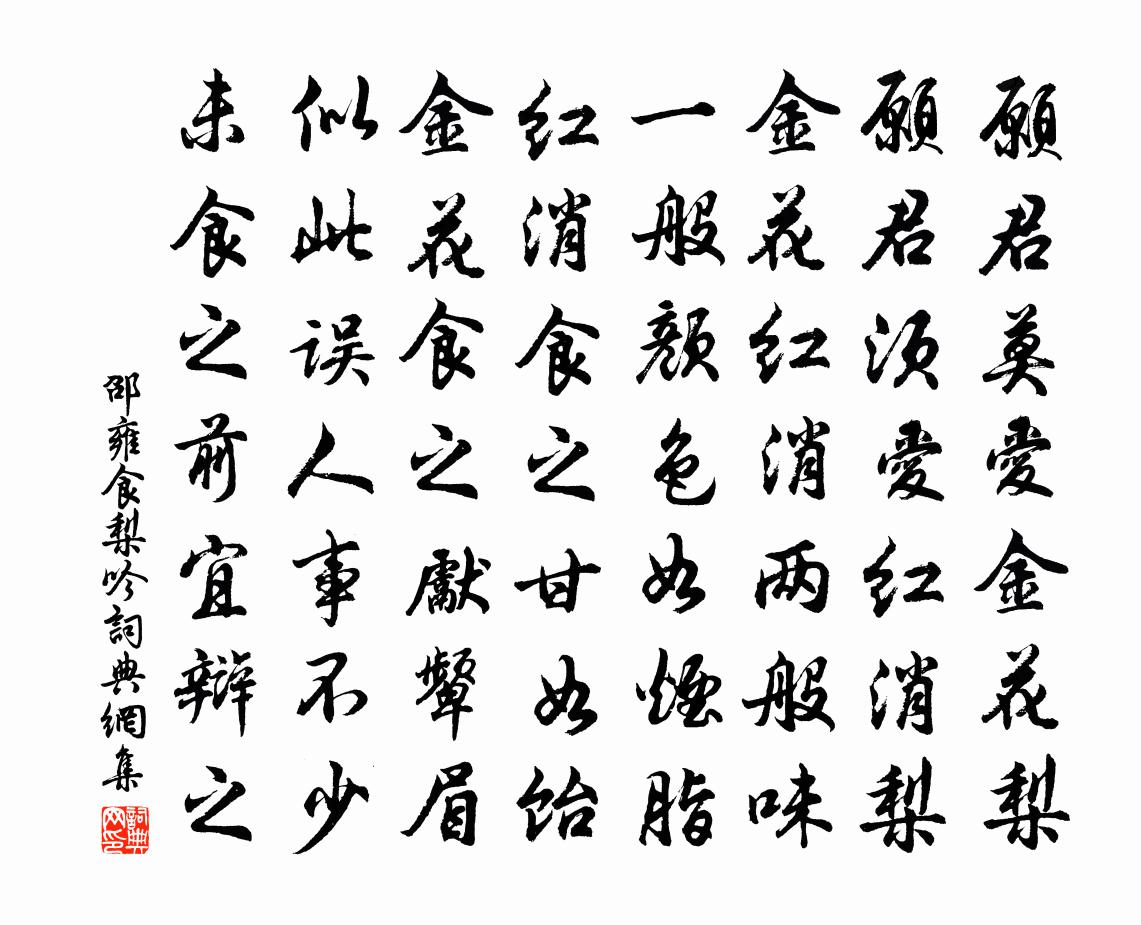 願君莫愛金花梨
願君須愛红消梨
金花红消两般味
一般颜色如煙脂
红消食之甘如饴
金花食之獻颦眉
似此误人事不少
未食之前宜辩之
邵雍食梨吟詞典網集
詞典网印